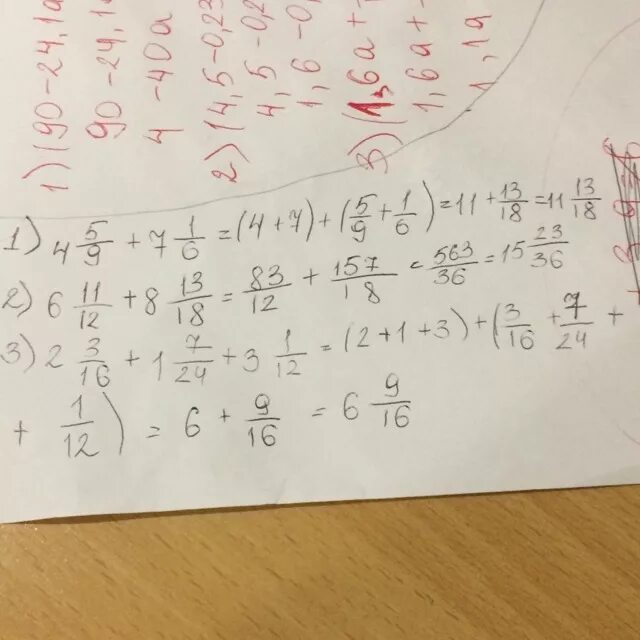 1) (90-24,1a
90-24,1
4 -40a
2) (4,5-0,23
4,5-0,2
1,6 -0
3) (1,6a +
1,6a +
1,1a
1) 4 5/9 + 7 1/6 = (4+7) + (5/9 + 1/6) = 11 + 13/18 = 11 13/18
2) 6 11/12 + 8 13/18 = 83/12 + 157/18 = 563/36 = 15 23/36
3) 2 3/16 + 1 7/24 + 3 1/12 = (2+1+3) + (3/16 + 7/24 +
+ 1/12) = 6 + 9/16 = 6 9/16